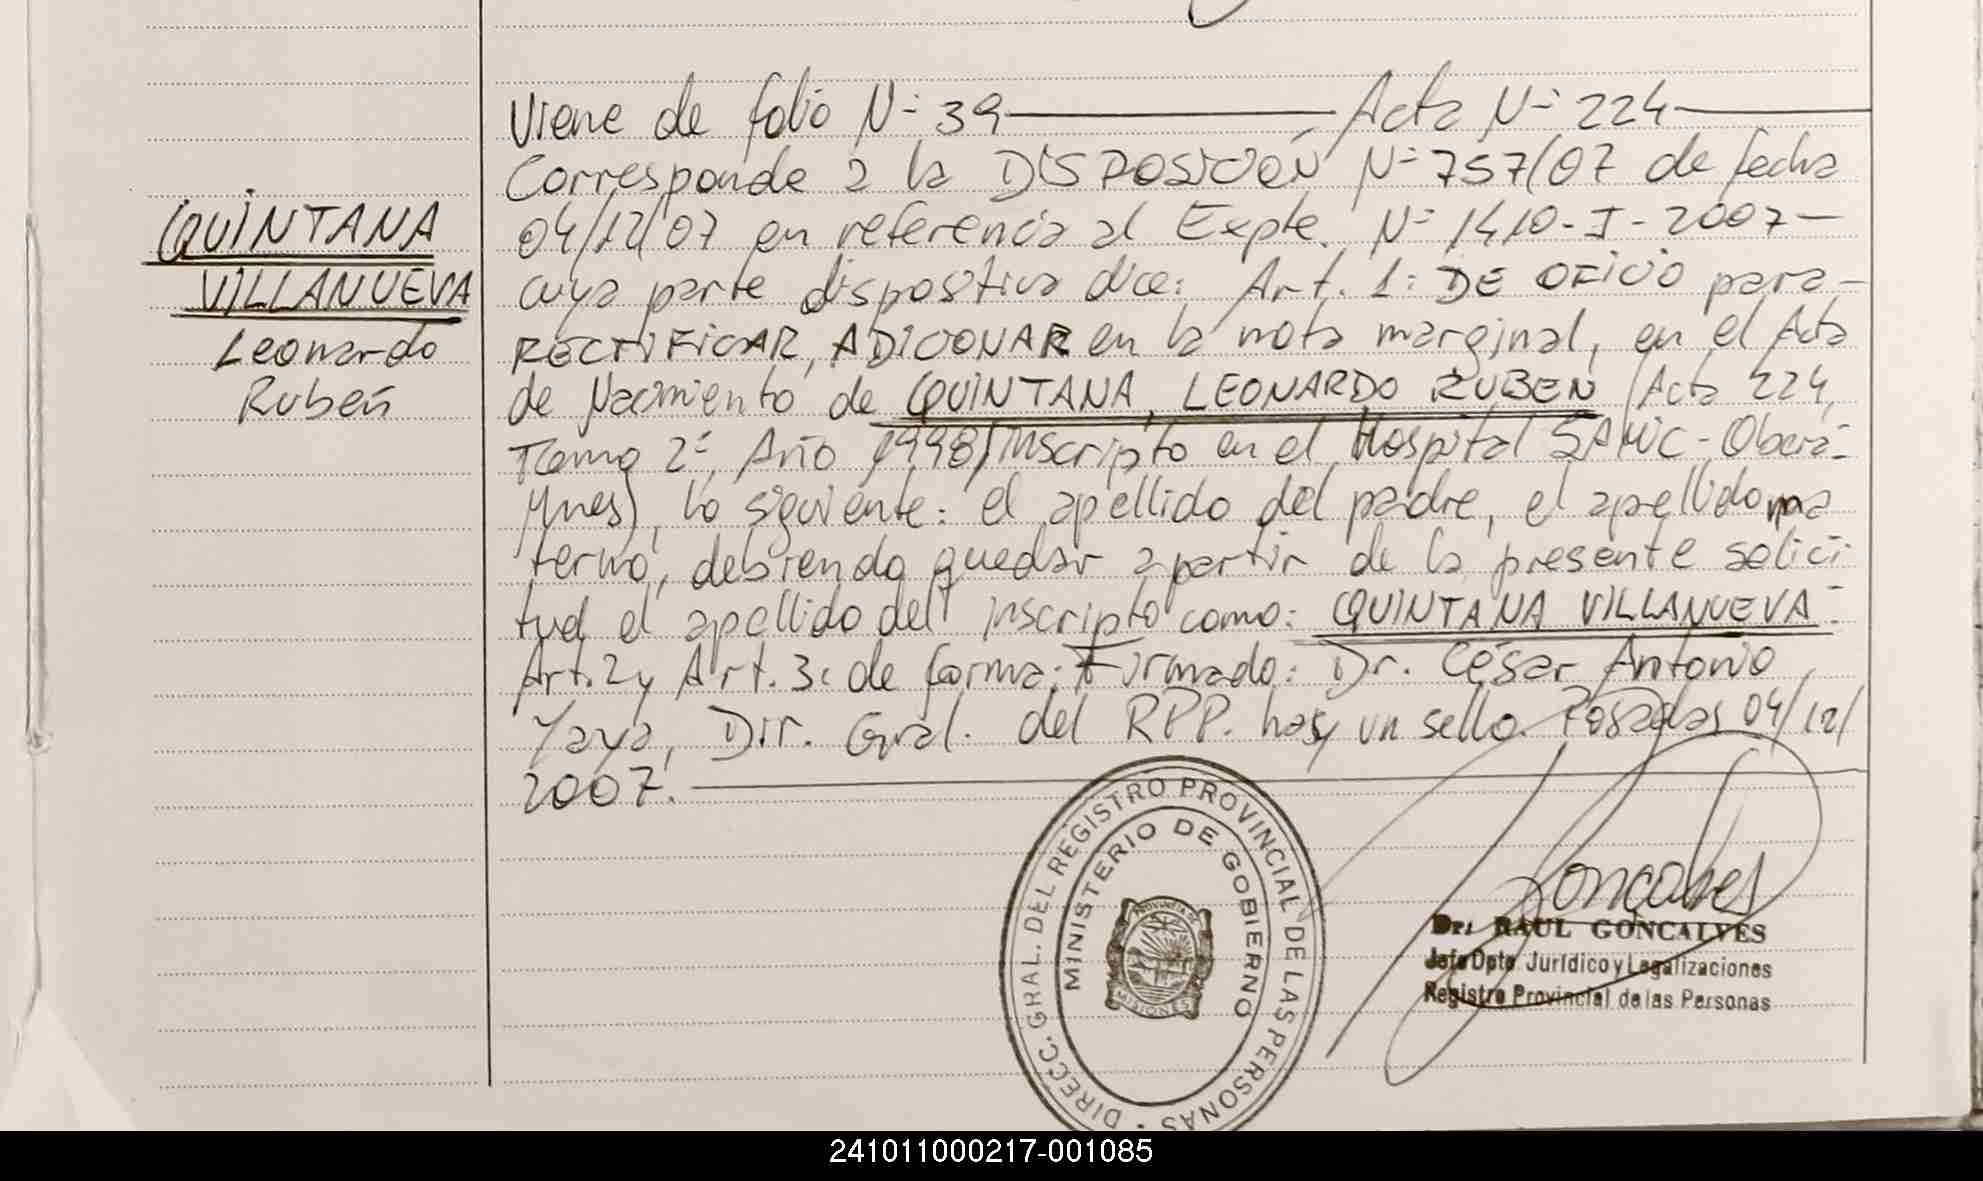 Viene de folio N- 39 Acta N- 224
Corresponde a la DISPOSICIÓN N- 757/07 de fecha
QUINTANA
04/12/07 en referencia al Expte. N- 1410-I-2007-
VILLANUEVA
cuya parte dispositiva dice: Art. 1: DE OFICIO para-
Leonardo
RECTIFICAR, ADICIONAR en la nota marginal, en el Acta
Rubén
de Nacimiento de QUINTANA, LEONARDO RUBEN (Acta 224,
Tomo 2º, Año 1998) inscripto en el Hospital SAMIC-Oberá-
Mnes), lo siguiente: el apellido del padre, el apellido ma
terno, debiendo quedar a partir de la presente solici-
tud el apellido del inscripto como: QUINTANA VILLANUEVA-
Art. 2 y Art. 3: de forma. Firmado: Dr. César Antonio
Yaya, Dir. Gral. del RPP. hay un sello. Posadas 04/12/
2007.
DIRECC. GRAL. DEL REGISTRO PROVINCIAL DE LAS PERSONAS
MINISTERIO DE GOBIERNO
PROVINCIA DE
MISIONES
Goncalves
Dr. RAUL GONCALVES
Jefe Dpto. Jurídico y Legalizaciones
Registro Provincial de las Personas
241011000217-001085